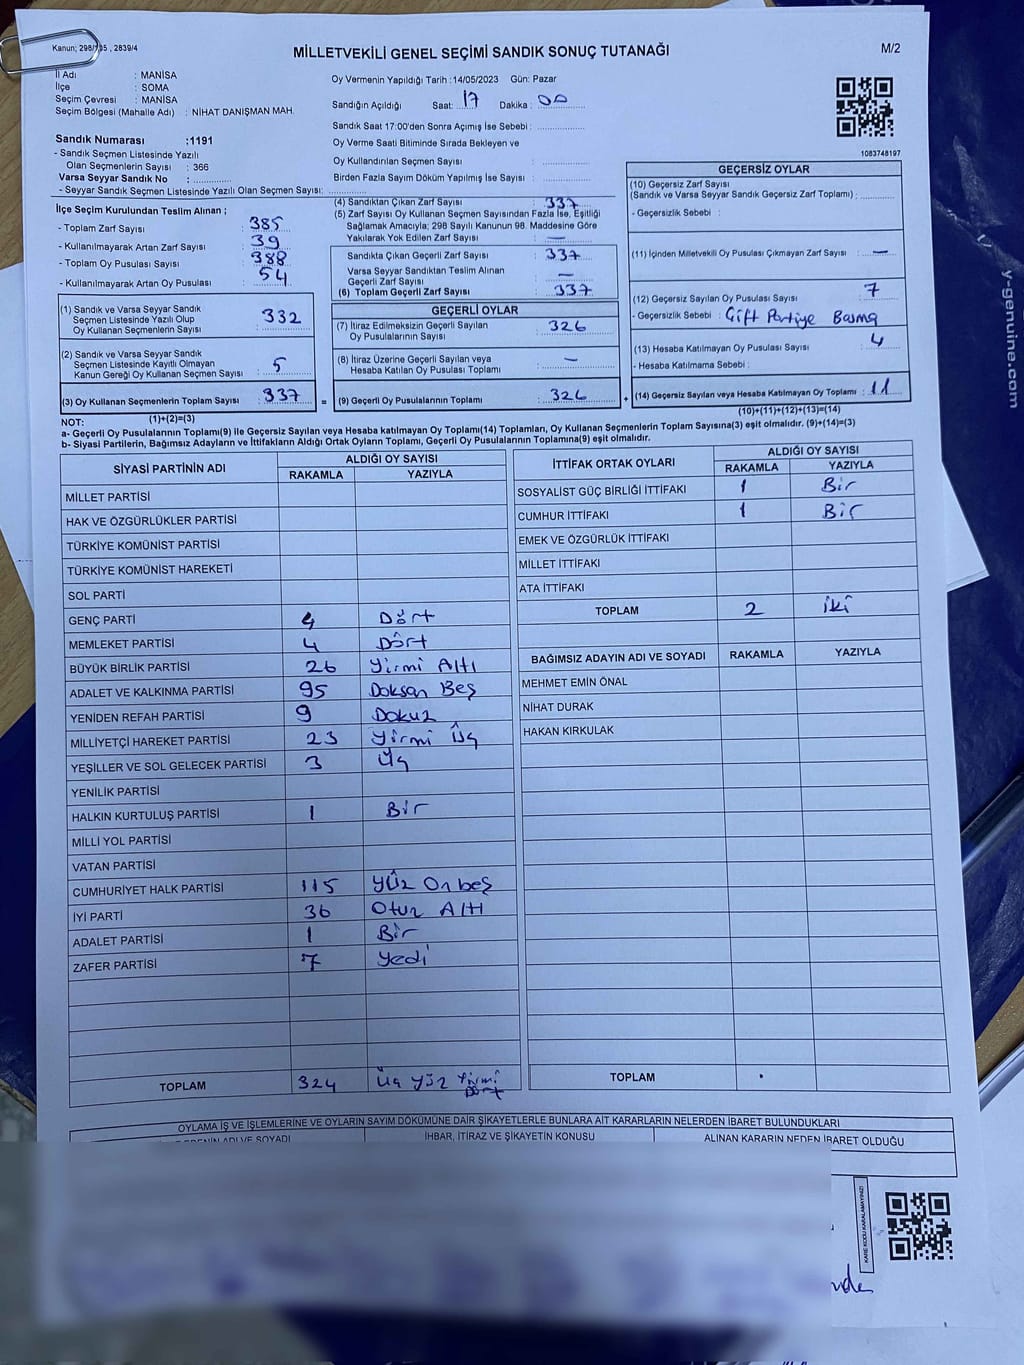 Kanun; 298/135 , 2839/4
MİLLETVEKİLİ GENEL SEÇİMİ SANDIK SONUÇ TUTANAĞI
M/2
İl Adı : MANİSA
İlçe : SOMA
Seçim Çevresi : MANİSA
Seçim Bölgesi (Mahalle Adı) : NİHAT DANIŞMAN MAH.
Oy Vermenin Yapıldığı Tarih :14/05/2023 Gün: Pazar
Sandığın Açıldığı Saat: 17 Dakika : 00
Sandık Saat 17:00'den Sonra Açımış İse Sebebi :
Oy Verme Saati Bitiminde Sırada Bekleyen ve
Oy Kullandırılan Seçmen Sayısı :
Birden Fazla Sayım Döküm Yapılmış İse Sayısı :
1083748197
Sandık Numarası :1191
- Sandık Seçmen Listesinde Yazılı
Olan Seçmenlerin Sayısı : 366
Varsa Seyyar Sandık No :
- Seyyar Sandık Seçmen Listesinde Yazılı Olan Seçmen Sayısı:
İlçe Seçim Kurulundan Teslim Alınan ;
- Toplam Zarf Sayısı : 385
- Kullanılmayarak Artan Zarf Sayısı : 39
- Toplam Oy Pusulası Sayısı : 388
- Kullanılmayarak Artan Oy Pusulası : 54
(1) Sandık ve Varsa Seyyar Sandık
Seçmen Listesinde Yazılı Olup
Oy Kullanan Seçmenlerin Sayısı : 332
(2) Sandık ve Varsa Seyyar Sandık
Seçmen Listesinde Kayıtlı Olmayan
Kanun Gereği Oy Kullanan Seçmen Sayısı : 5
(3) Oy Kullanan Seçmenlerin Toplam Sayısı : 337
(1)+(2)=(3)
(4) Sandıktan Çıkan Zarf Sayısı : 337
(5) Zarf Sayısı Oy Kullanan Seçmen Sayısından Fazla İse, Eşitliği
Sağlamak Amacıyla; 298 Sayılı Kanunun 98. Maddesine Göre
Yakılarak Yok Edilen Zarf Sayısı : —
Sandıkta Çıkan Geçerli Zarf Sayısı : 337
Varsa Seyyar Sandıktan Teslim Alınan
Geçerli Zarf Sayısı : —
(6) Toplam Geçerli Zarf Sayısı : 337
GEÇERLİ OYLAR
(7) İtiraz Edilmeksizin Geçerli Sayılan
Oy Pusulalarının Sayısı : 326
(8) İtiraz Üzerine Geçerli Sayılan veya
Hesaba Katılan Oy Pusulası Toplamı : —
= (9) Geçerli Oy Pusulalarının Toplamı : 326 +
GEÇERSİZ OYLAR
(10) Geçersiz Zarf Sayısı
(Sandık ve Varsa Seyyar Sandık Geçersiz Zarf Toplamı) :
- Geçersizlik Sebebi :
(11) İçinden Milletvekili Oy Pusulası Çıkmayan Zarf Sayısı : —
(12) Geçersiz Sayılan Oy Pusulası Sayısı : 7
- Geçersizlik Sebebi : Çift Partiye Basma
(13) Hesaba Katılmayan Oy Pusulası Sayısı : 4
- Hesaba Katılmama Sebebi :
(14) Geçersiz Sayılan veya Hesaba Katılmayan Oy Toplamı : 11
(10)+(11)+(12)+(13)=(14)
NOT:
a- Geçerli Oy Pusulalarının Toplamı(9) ile Geçersiz Sayılan veya Hesaba Katılmayan Oy Toplamı(14) Toplamları, Oy Kullanan Seçmenlerin Toplam Sayısına(3) eşit olmalıdır. (9)+(14)=(3)
b- Siyasi Partilerin, Bağımsız Adayların ve İttifakların Aldığı Ortak Oyların Toplamı, Geçerli Oy Pusulalarının Toplamına(9) eşit olmalıdır.
SİYASİ PARTİNİN ADI ALDIĞI OY SAYISI
RAKAMLA YAZIYLA
MİLLET PARTİSİ
HAK VE ÖZGÜRLÜKLER PARTİSİ
TÜRKİYE KOMÜNİST PARTİSİ
TÜRKİYE KOMÜNİST HAREKETİ
SOL PARTİ
GENÇ PARTİ 4 Dört
MEMLEKET PARTİSİ 4 Dört
BÜYÜK BİRLİK PARTİSİ 26 Yirmi Altı
ADALET VE KALKINMA PARTİSİ 95 Doksan Beş
YENİDEN REFAH PARTİSİ 9 Dokuz
MİLLİYETÇİ HAREKET PARTİSİ 23 Yirmi Üç
YEŞİLLER VE SOL GELECEK PARTİSİ 3 Üç
YENİLİK PARTİSİ
HALKIN KURTULUŞ PARTİSİ 1 Bir
MİLLİ YOL PARTİSİ
VATAN PARTİSİ
CUMHURİYET HALK PARTİSİ 115 Yüz On beş
İYİ PARTİ 36 Otuz Altı
ADALET PARTİSİ 1 Bir
ZAFER PARTİSİ 7 Yedi
TOPLAM 324 Üç Yüz Yirmi
Dört
İTTİFAK ORTAK OYLARI ALDIĞI OY SAYISI
RAKAMLA YAZIYLA
SOSYALİST GÜÇ BİRLİĞİ İTTİFAKI 1 Bir
CUMHUR İTTİFAKI 1 Bir
EMEK VE ÖZGÜRLÜK İTTİFAKI
MİLLET İTTİFAKI
ATA İTTİFAKI
TOPLAM 2 İki
BAĞIMSIZ ADAYIN ADI VE SOYADI RAKAMLA YAZIYLA
MEHMET EMİN ÖNAL
NİHAT DURAK
HAKAN KIRKULAK
TOPLAM
OYLAMA İŞ VE İŞLEMLERİNE VE OYLARIN SAYIM DÖKÜMÜNE DAİR ŞİKAYETLERLE BUNLARA AİT KARARLARIN NELERDEN İBARET BULUNDUKLARI
ADI VE SOYADI İHBAR, İTİRAZ VE ŞİKAYETİN KONUSU ALINAN KARARIN NEDEN İBARET OLDUĞU
KARE KODU KARALAMAYINIZ!
y-genuine.com